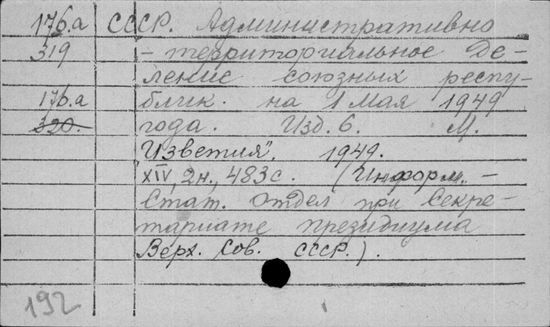 176.а СССР. Административно
319 - территориальное де-
ление союзных респу-
176.а блик. на 1 мая 1949
320. года. Изд. 6. М.
"Изветия". 1949.
XIV, 2н., 483с. (Информ. -
Стат. отдел при Секре-
тариате президиума
Верх. Сов. СССР.).
192